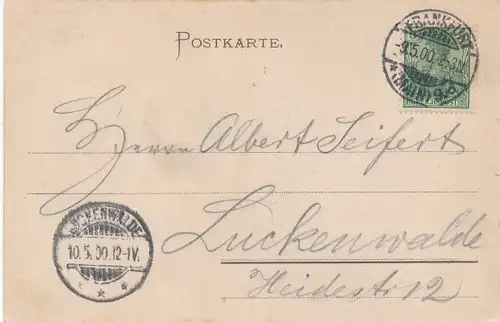 POSTKARTE.
FRANKFURT
-9.5.00.2-3N.
*(MAIN)9.d
Herrn Albert Seifert
LUCKENWALDE
10.5.00.12-1V.
Luckenwalde
Heidestr 12